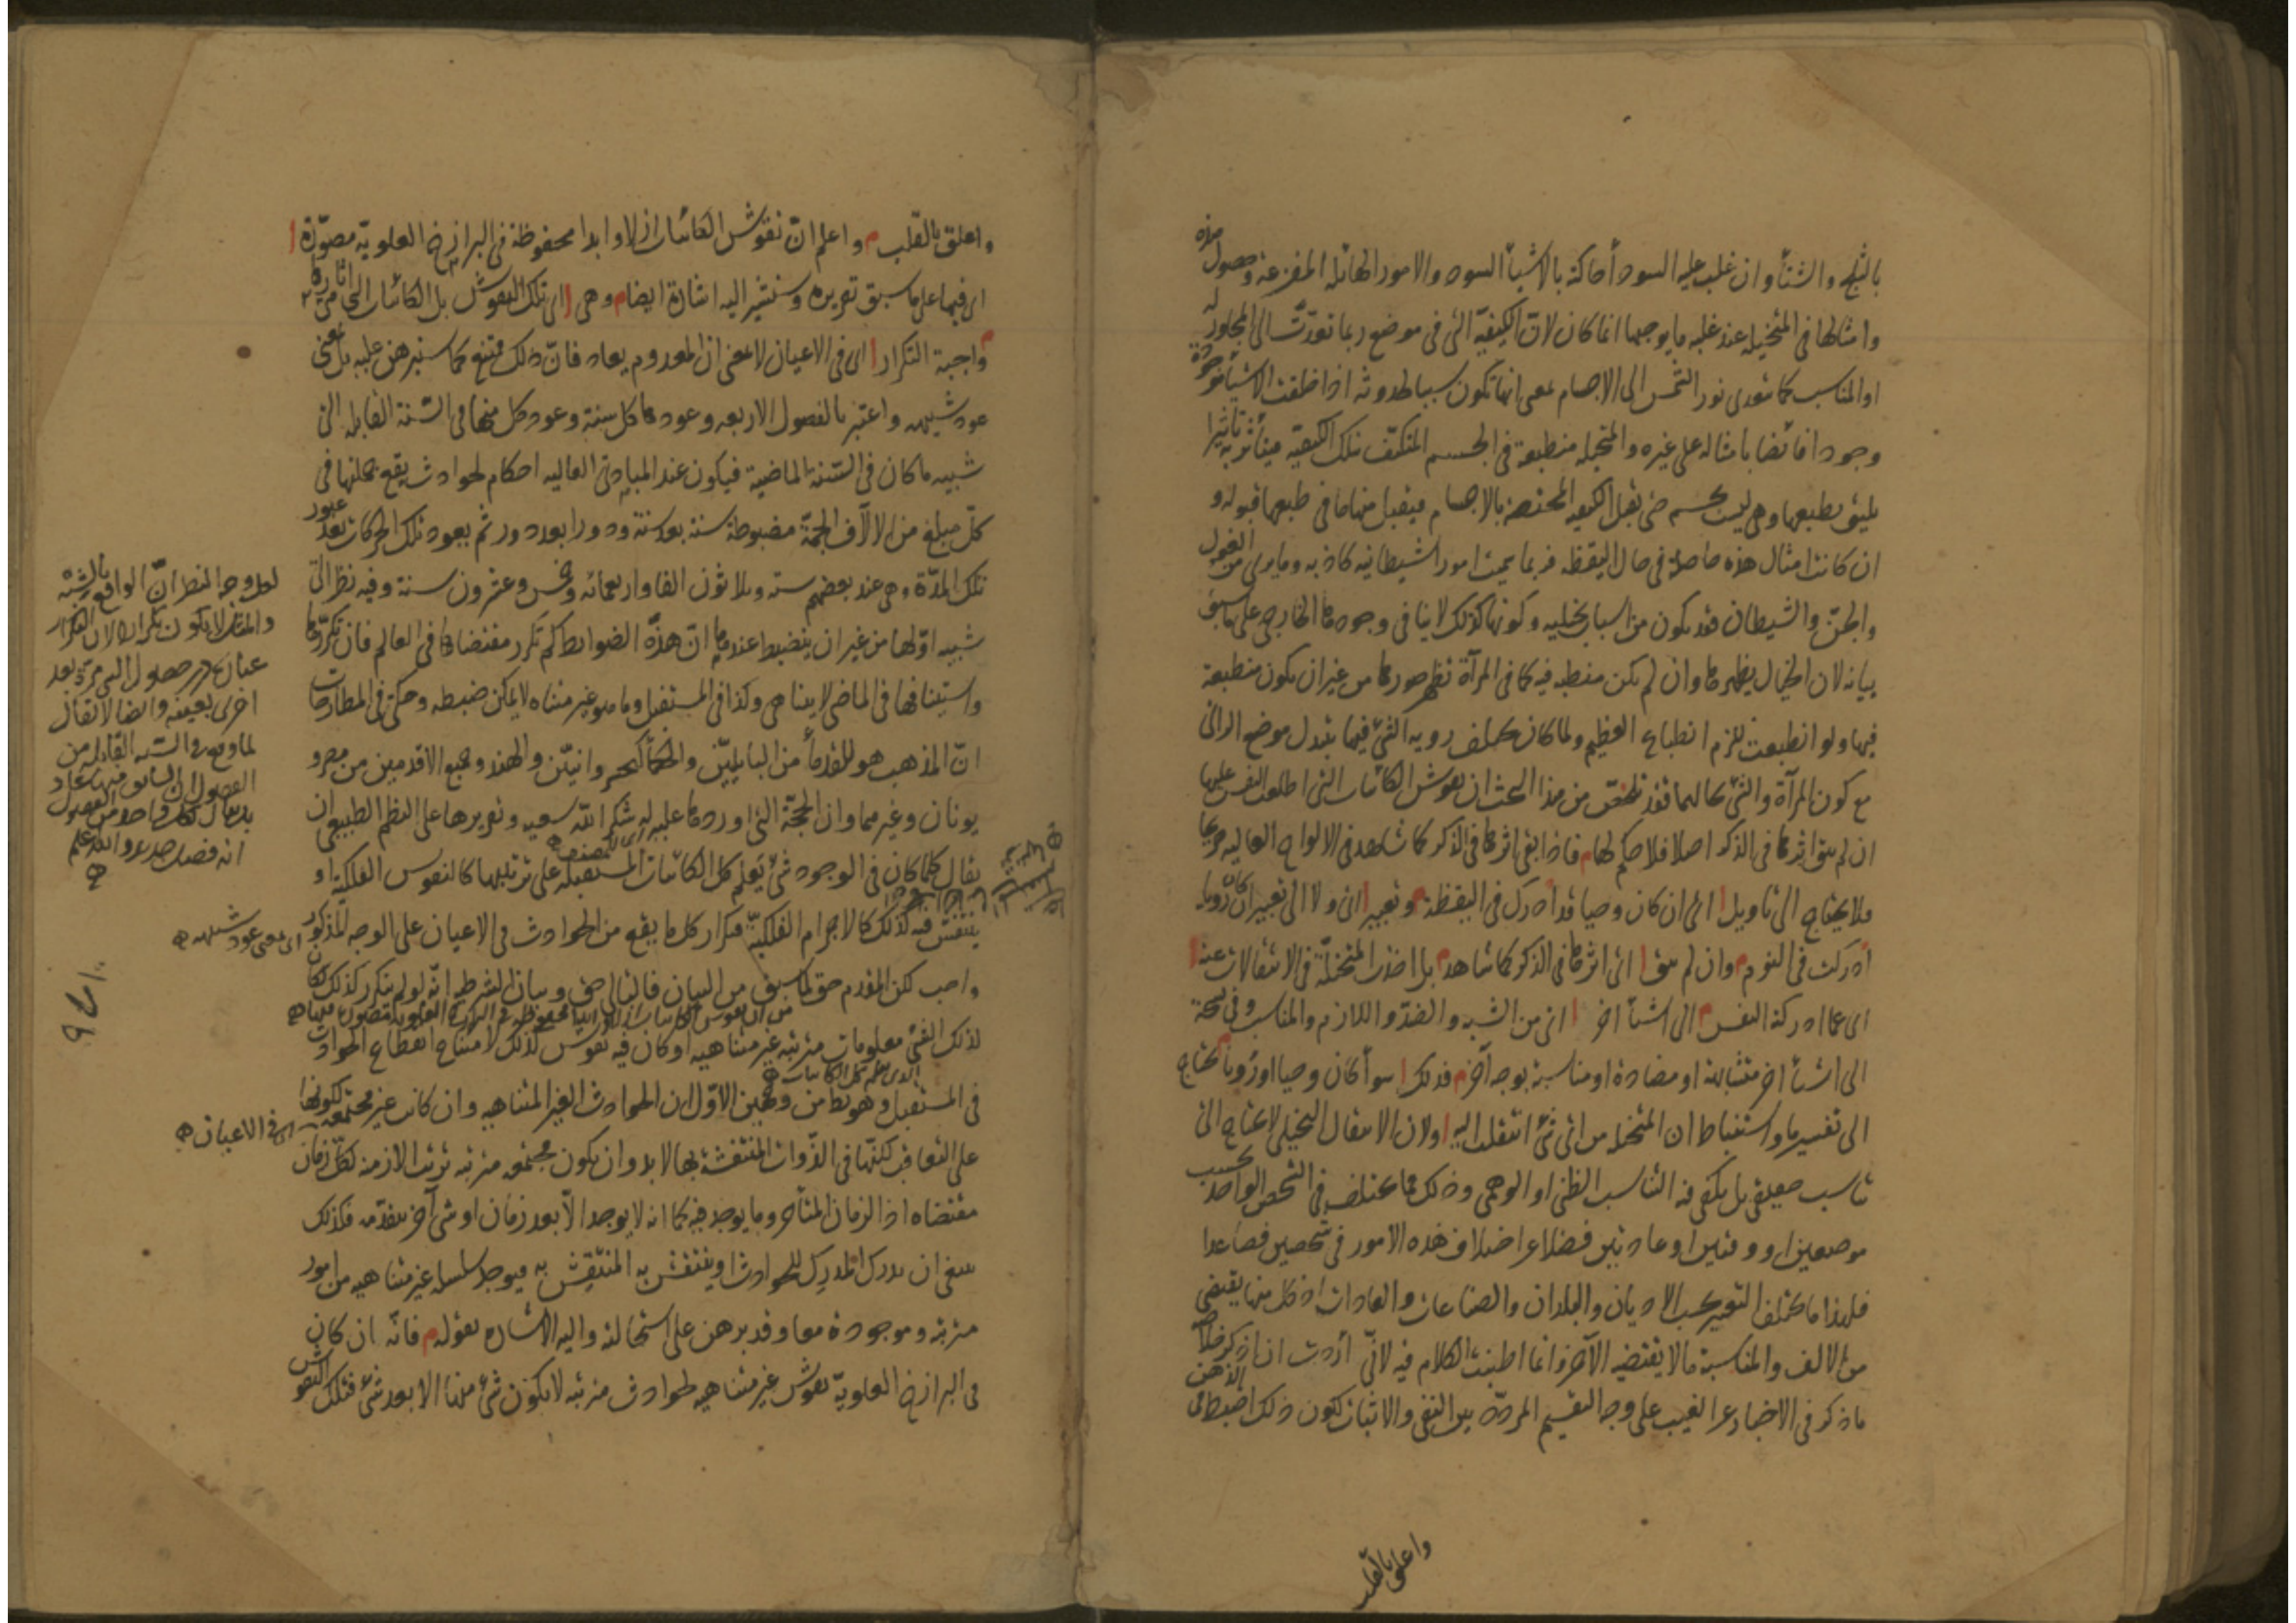 بالثلج والشتاء وان غلب عليه السوداء حاكته بالاشياء السود والامور الهائلة المفزعة وحصول هذه
وامثالها فى المتخيلة عند غلبة ما يوجبها انما كان لان الكيفية التى فى موضع ربما تعدت الى المجاور له
او المناسب كما يتعدى نور الشمس الى الاجسام بمعنى انها تكون سببا لحدوثه اذ خلقت الاشياء موجودة
وجودا فائضا بامثاله على غيره والمتخيلة منطبعة فى الجسم المتكيف بتلك الكيفية فيتأثر به تأثيرا
يليق بطبعها وهى ليست بجسم حتى يقبل الكيفية المختصة بالاجسام فيقبل منها ما فى طبعها قبوله و
ان كانت امثال هذه حاصلة فى حال اليقظة فربما سميت امورا شيطانية كاذبة وما يرى من الغول
والجن والشيطان فقد يكون من اسباب تخيلية وكونها كذلك لا ينافى وجودها الخارجى على ما سبق
بيانه لان الخيال يظهرها وان لم يكن منطبعة فيه كما فى المرآة تظهر صورها من غير ان يكون منطبعة
فيها ولو انطبعت للزم انطباع العظيم ولما كان يختلف رويه الشئ فيها بتبدل موضع الرائى
مع كون المرآة والشئ بحالهما فقد تحقق من هذا البحث ان نقوش الكائنات التى اطلعت النفس عليها
ان لم يبق اثرها فى الذكر اصلا فلا حكم لها م فاذا بقى اثرها فى الذكر كما شاهد فى الالواح العالية صريحا
فلا يحتاج الى تأويل ا اى ان كان وحيا قد ادرك فى اليقظة م وتعبير ا اى ولا الى تعبير ان كان رؤيا
ادركت فى النوم م وان لم يبق ا اى اثرها فى الذكر كما شاهد م بل اخذت المتخيلة فى الانتقالات عنه ا
اى عما ادركته النفس م الى اشياء اخر ا اى من الشبه والضد واللازم والمناسب وفى نسخة
الى اشياء اخر متشابهة او مضادة او مناسبة بوجه آخر م فذلك ا سواء كان وحيا او رؤيا م يحتاج
الى تفسير ما واستنباط ان المتخيلة من اى شئ انتقلت اليه ا ولان الانتقال التخيلى لا يحتاج الى
تناسب حقيقى بل يكفى فيه التناسب الظنى او الوهمى وذلك مما يختلف فى الشخص الواحد بحسب
موضعين او وقتين او عادتين فضلا عن اختلاف هذه الامور فى شخصين فصاعدا
فلهذا ما يختلف التعبير بحسب الاديان والبلدان والصناعات والعادات اذ كل منها يقتضى
من الالف والمناسبة ما لا يقتضيه الآخر وانما اطنبت الكلام فيه لانى اردت ان اذكر خلاصة
ما ذكر فى الاخبار عن الغيب على وجه التقسيم المردد بين النفى والاثبات لكون ذلك اضبط فى الذهن
واعلق بالقلب
واعلق بالقلب م واعلم ان نقوش الكائنات ازلا وابدا محفوظة فى البرازخ العلوية مصورة ا
اى فيها على ما سبق تقريره وسنشير اليه اشارة ايضا م وهى ا اى تلك النقوش بل الكائنات التى هى آثارها
م واجبة التكرار ا اى فى الاعيان لا بمعنى ان المعدوم يعاد فان ذلك ممتنع كما سنبرهن عليه بل بمعنى
عود شبيهه واعتبر بالفصول الاربعة وعودها كل سنة وعود كل منها فى السنة القابلة الى
شبيه ما كان فى السنة الماضية فيكون عند المبادى العالية احكام لحوادث يقع جملتها فى
كل مبلغ من الآلاف الجمة مضبوطة سنة بعد سنة ودورا بعد دور ثم يعود تلك الحركات بعد عبور
تلك المدة وهى عند بعضهم ستة وثلاثون الفا واربعمائة وخمس وعشرون سنة وفيه نظر الى
شبيه اولها من غير ان ينضبط عندها ان هذه الضوابط كم تكرر مقتضاها فى العالم فان تكررها
واستينافها فى الماضى لا يتناهى وكذا فى المستقبل وما هو غير متناه لا يمكن ضبطه وحكى فى المطارحات
ان المذهب هو للقدماء من البابليين والحكماء الخسروانيين والهند وجميع الاقدمين من مصر و
يونان وغيرهما وان الحجة التى اوردها عليه له شكر الله سعيه وتقريرها على النظم الطبيعى ان
يقال كلما كان فى الوجود شئ يعلم كل الكائنات المستقبلة على ترتيبها كالنفوس الفلكية او
ينتقش فيه كذلك كالاجرام الفلكية فتكرار كل ما يقع من الحوادث فى الاعيان على الوجه المذكور
واجب لكن المقدم حق لما سبق من البيان فالتالى حق وبيان الشرطية انه لو لم يتكرر كذلك لكان
لذلك الشئ معلومات مترتبة غير متناهية او كان فيه نقوش كذلك لامتناع انقطاع الحوادث
فى المستقبل وهو باطل من وجهين الاول ان الحوادث الغير المتناهية وان كانت غير مجتمعة لكونها
على التعاقب لكنها فى الذوات المنتقشة بها لا بد وان يكون مجتمعة مترتبة ترتب الازمنة لكل زمان
مقتضاه اذ الزمان المتأخر وما يوجد فيه كما انه لا يوجد الا بعد زمان او شئ آخر يتقدمه فكذلك
ينبغى ان يدرك المدرك للحوادث او ينتقش به المنتقش به فيوجد سلسلة غير متناهية من امور
مترتبة وموجودة معا وقد برهن على استحالته واليه الاشارة بقوله م فانه ان كان
فى البرازخ العلوية نقوش غير متناهية لحوادث مترتبة لا يكون شئ منها الا بعد شئ فتلك النقوش
لعل وجه النظر ان الواقع بالشبه
والمثل لا يكون تكرارا لان التكرار
عبارة عن حصول الشئ مرة بعد
اخرى بعينه وايضا لا يقال
لما وقع فى السنة القابلة من
الفصول ان السابق منها عاد
بل يقال لكل واحد من الفصول
انه فصل جديد والله اعلم
اى بمعنى عود شبيهه
اى المصنف
من ان نقوش الكائنات ازلا وابدا محفوظة فى البرازخ العلوية مصورة فيها
الذى يعلم كل الكائنات
اى فى الاعيان